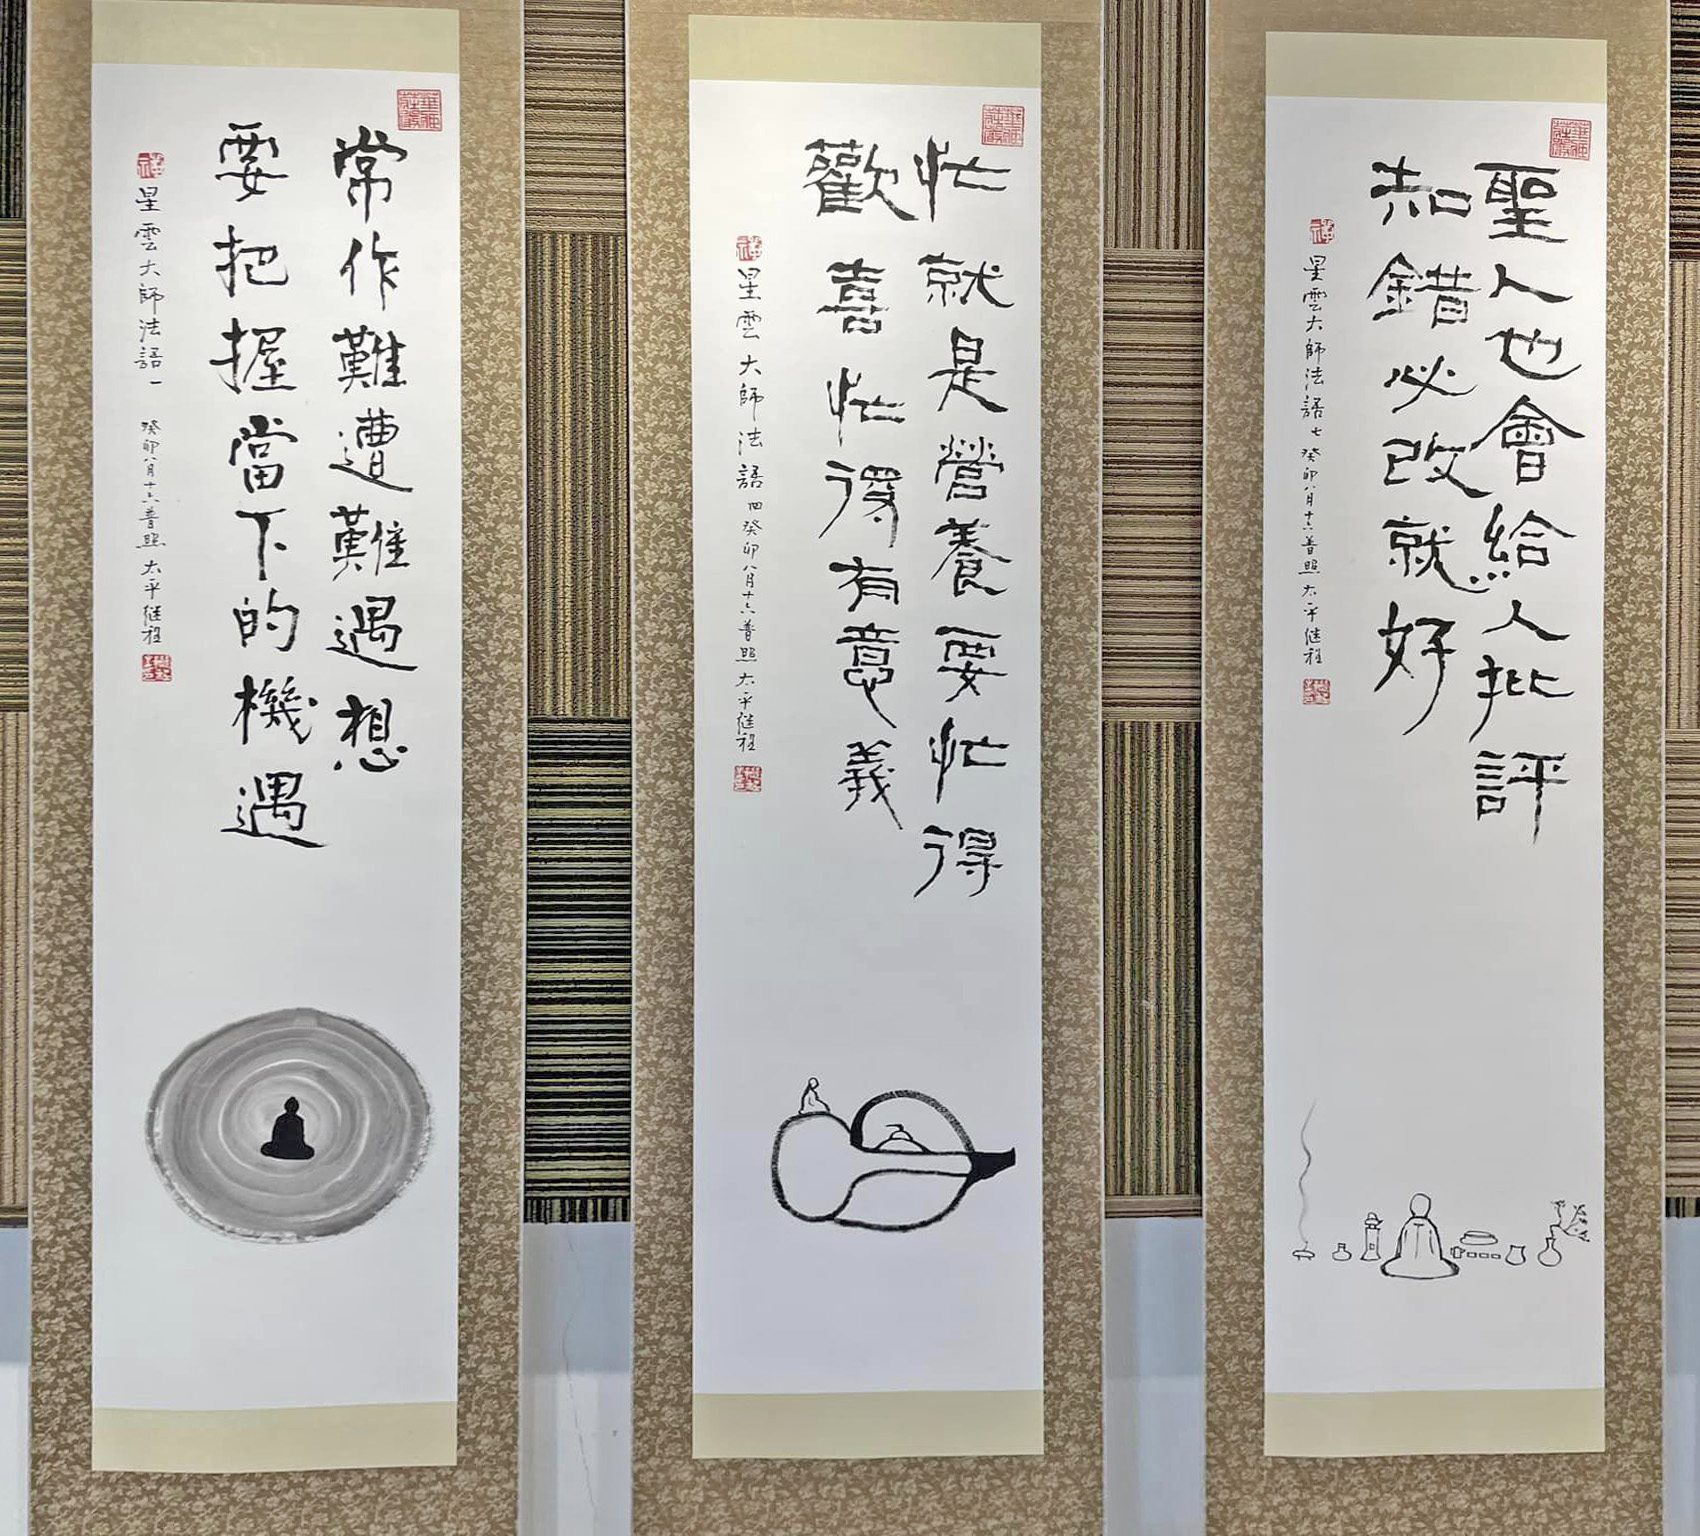 常作難遭難遇想
要把握當下的機遇
星雲大師法語一 癸卯八月十六普照 太平继程
忙就是營養要忙得
歡喜忙得有意義
星雲大師法語四癸卯八月十六普照 太平继程
聖人也會給人批評
知錯必改就好
星雲大師法語七癸卯八月十六普照 太平继程